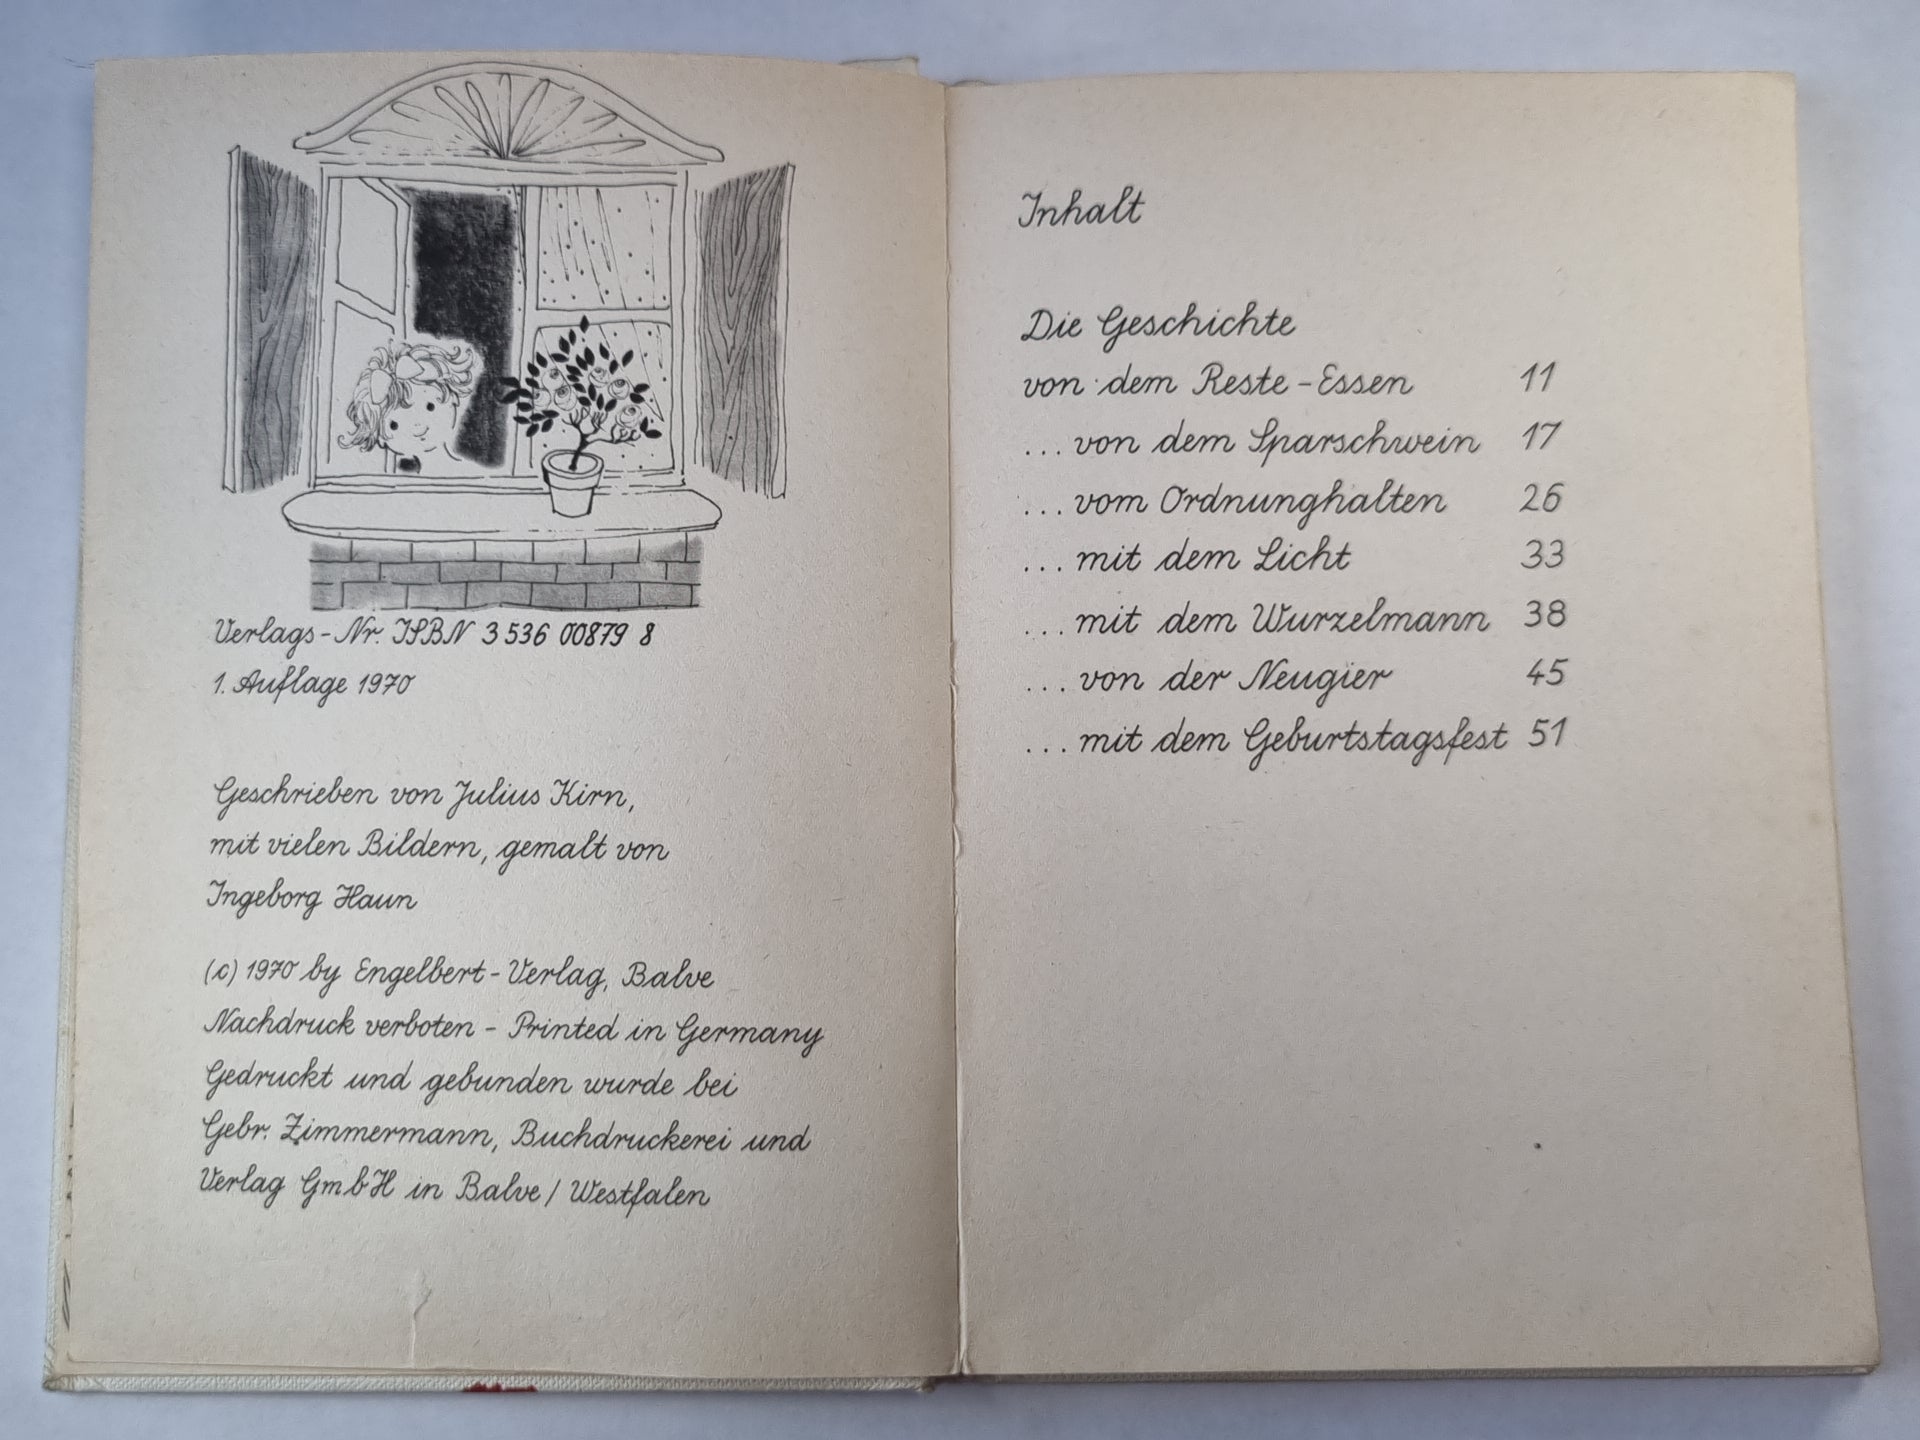 Verlags-Nr. ISBN 3 536 00879 8
1. Auflage 1970
Geschrieben von Julius Kirn,
mit vielen Bildern, gemalt von
Ingeborg Haun
(c) 1970 by Engelbert-Verlag, Balve
Nachdruck verboten - Printed in Germany
Gedruckt und gebunden wurde bei
Gebr. Zimmermann, Buchdruckerei und
Verlag GmbH in Balve / Westfalen
Inhalt
Die Geschichte
von dem Reste-Essen 11
... von dem Sparschwein 17
... vom Ordnunghalten 26
... mit dem Licht 33
... mit dem Wurzelmann 38
... von der Neugier 45
... mit dem Geburtstagsfest 51